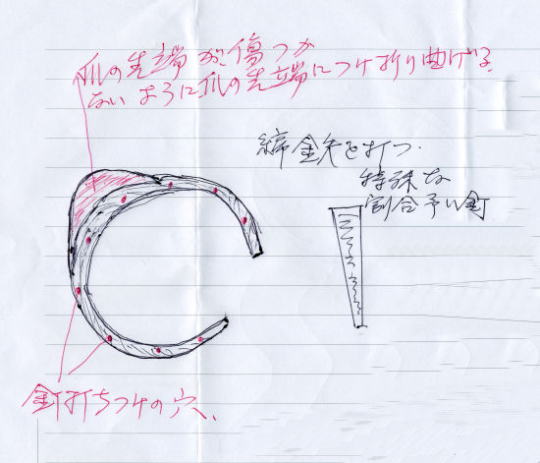 爪の先端が傷つか
ないように爪の先端につけ折り曲げる
蹄鉄を打つ
特殊な
割合予い釘
釘打ちつけの穴、